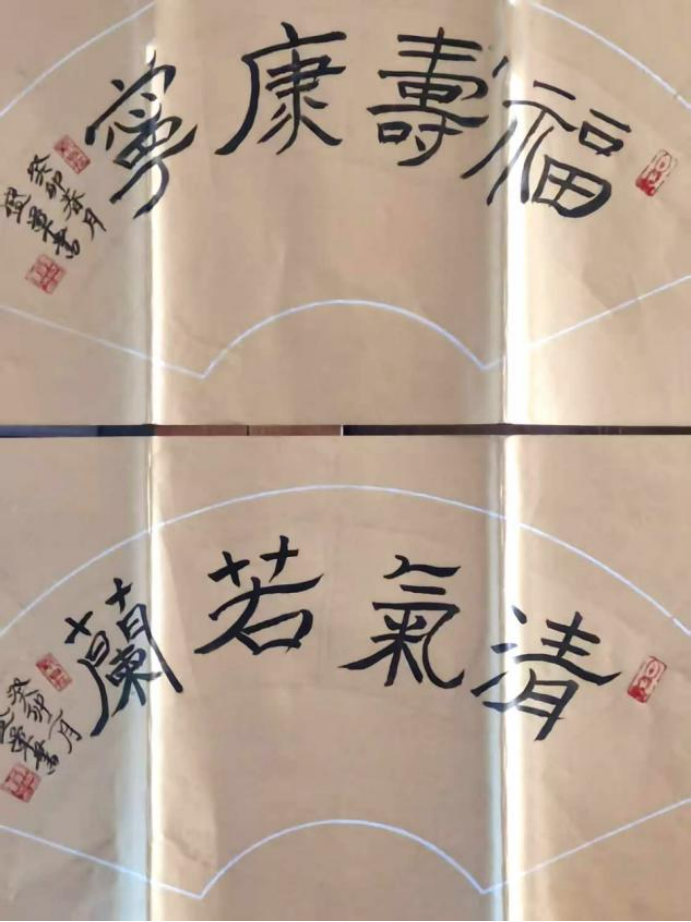 福壽康寧
癸卯春月
盛軍書
清氣若蘭
癸卯月
軍書